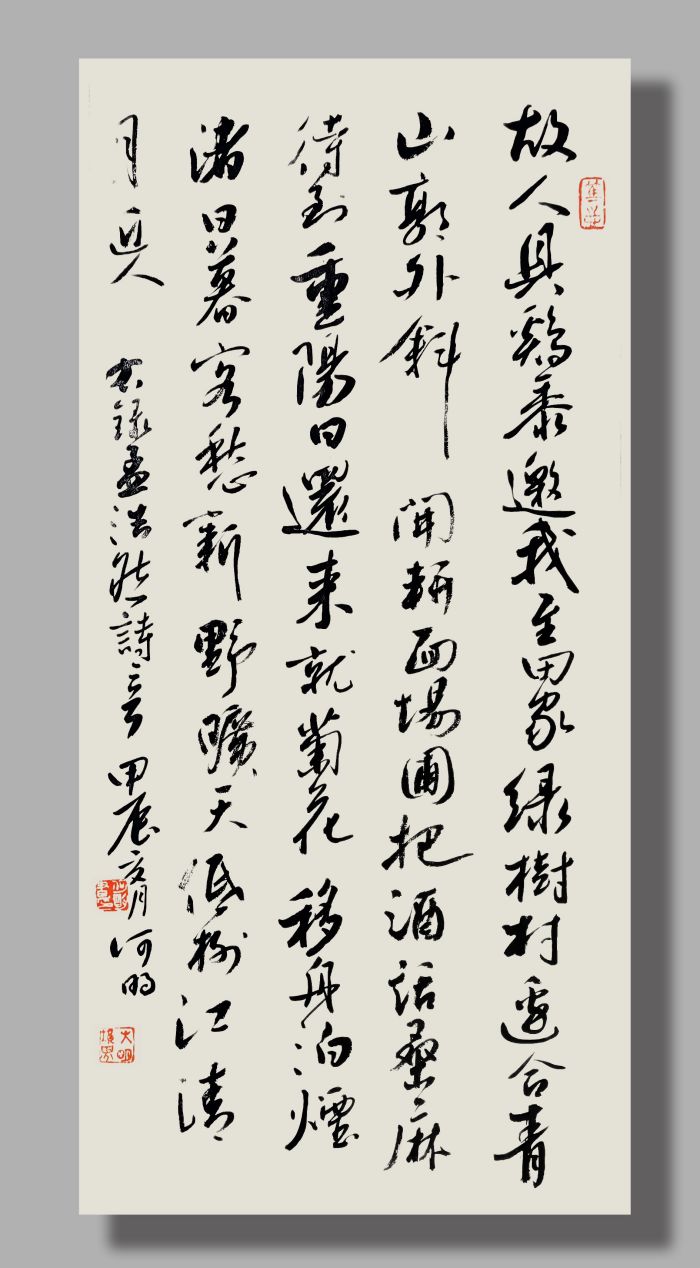 故人具鷄黍邀我至田家緑樹村邊合青
山郭外斜 開軒面場圃把酒話桑麻
待到重陽日還来就菊花 移舟泊煙
渚日暮客愁新 野曠天低樹江清
月近人 右録孟浩然詩二首 甲辰 月